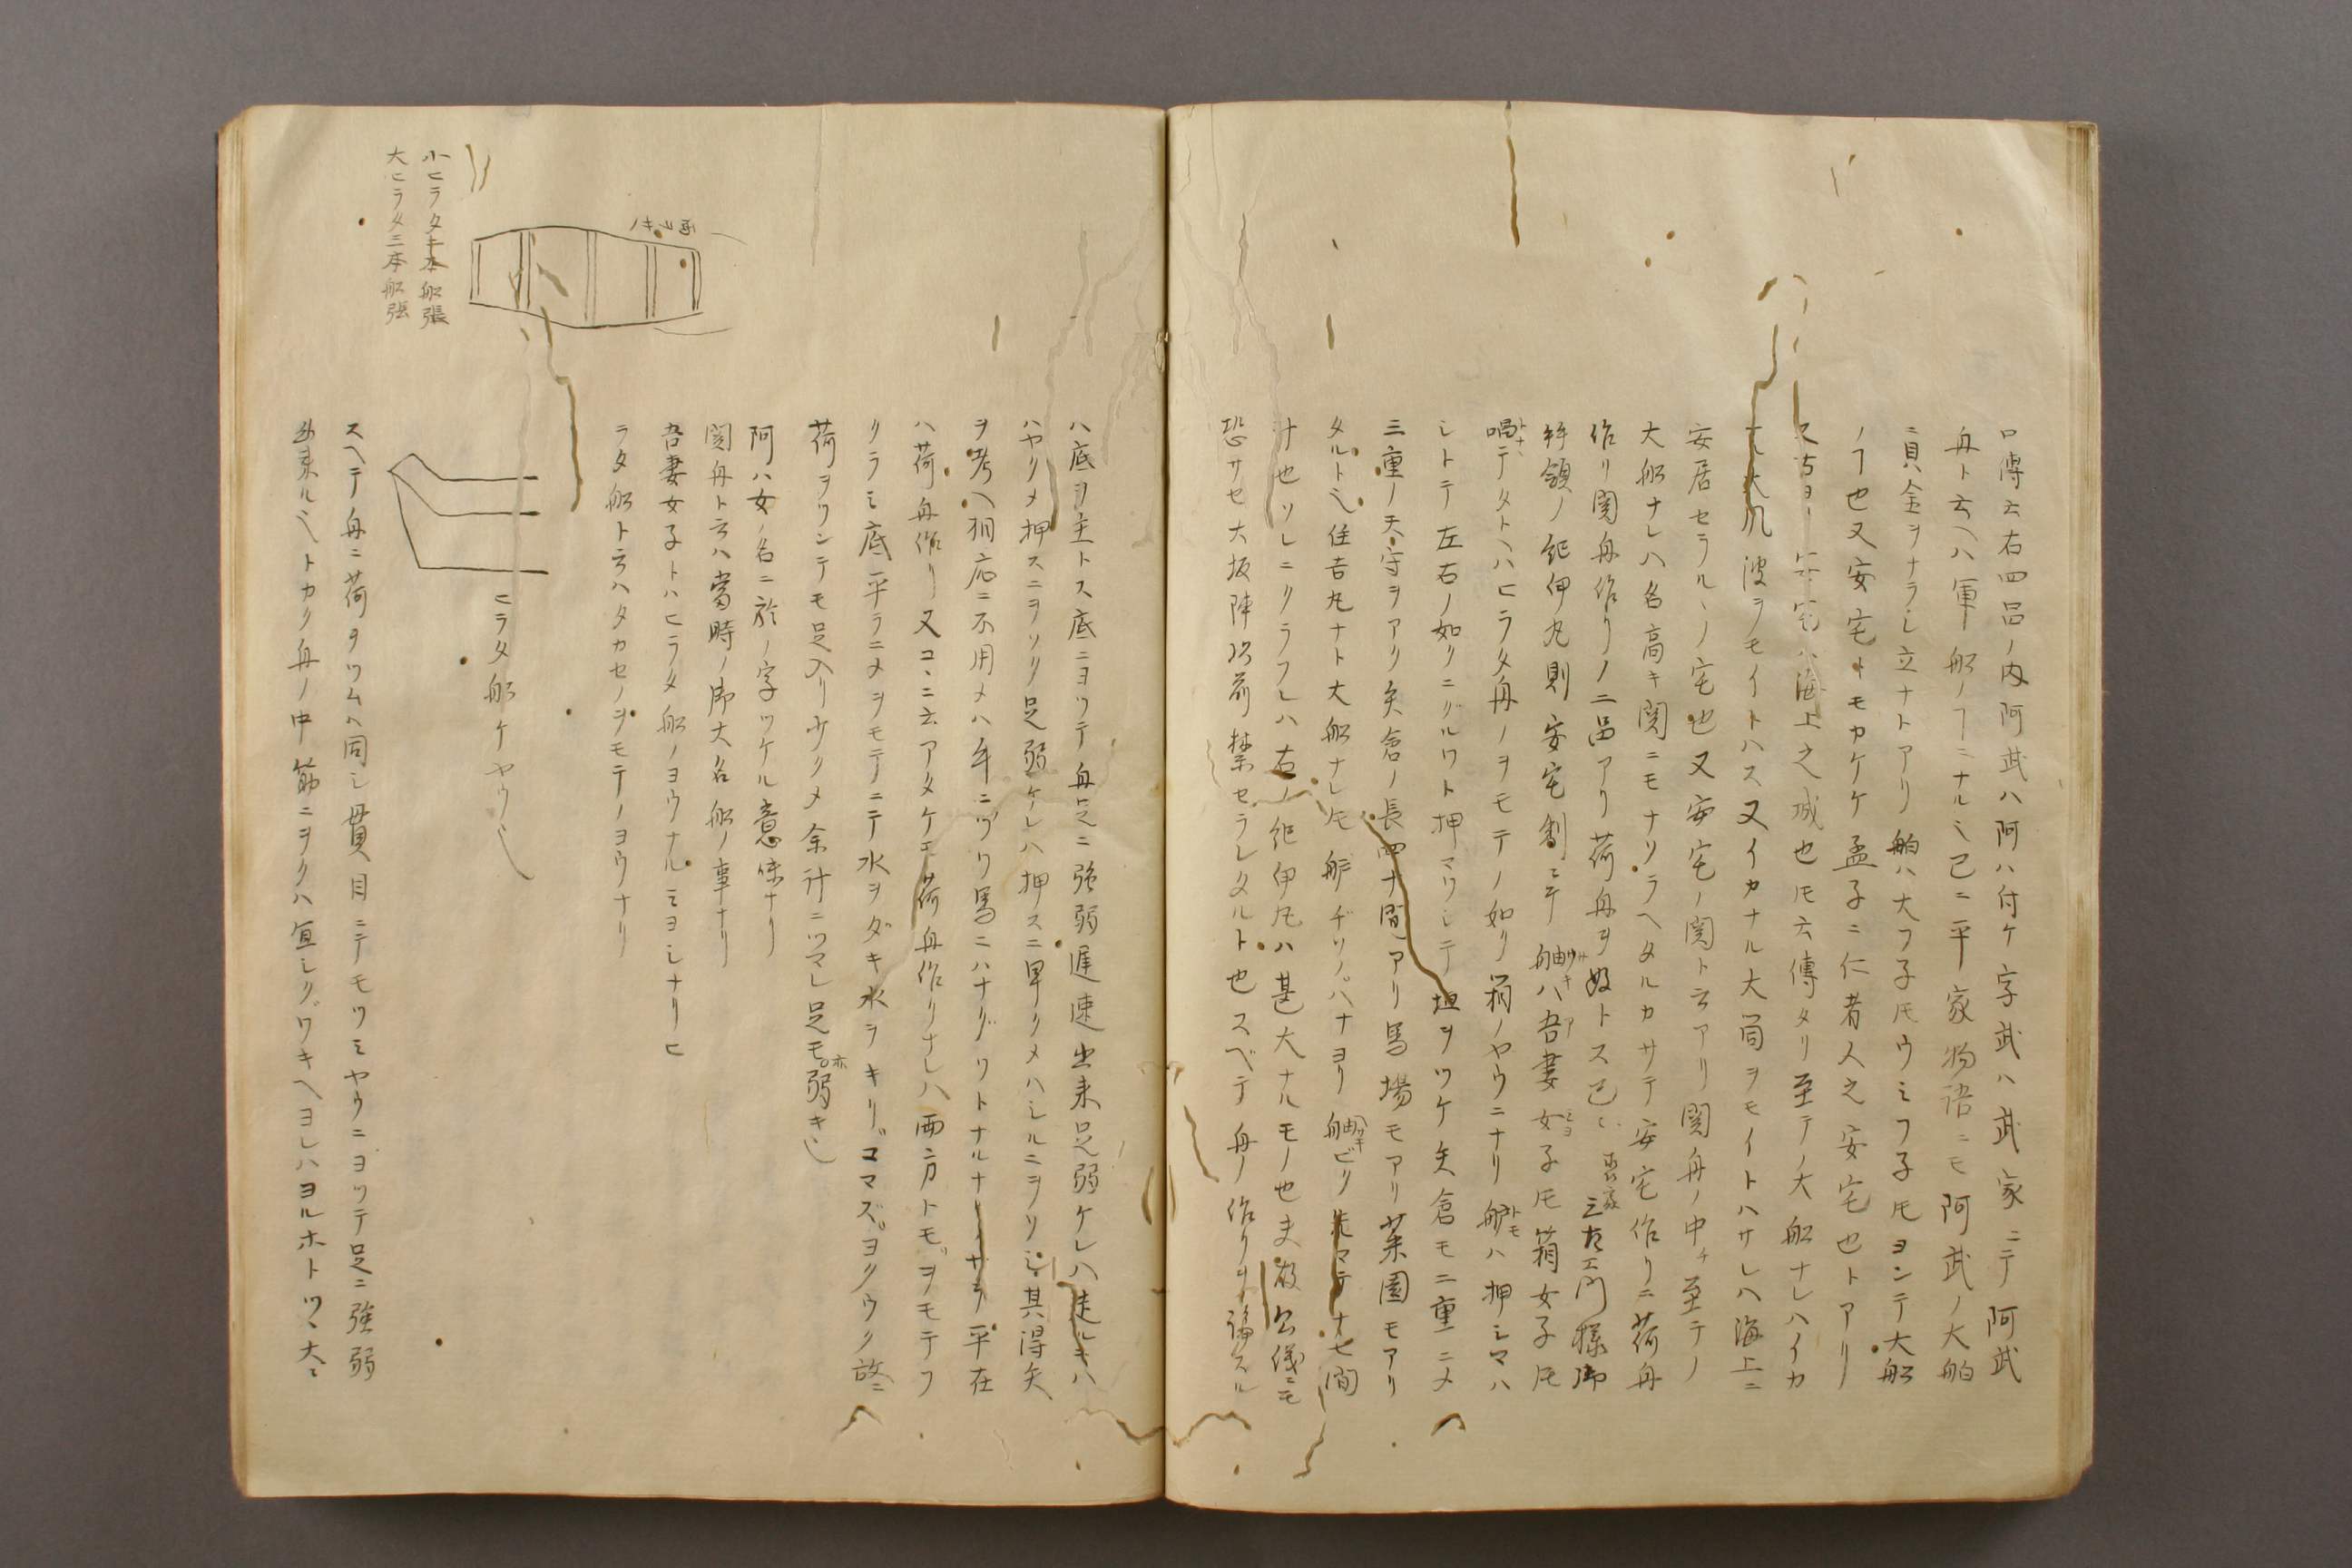 口傳云右四品ノ内阿武ハ阿ハ付ケ字武ハ武家ニテ阿武
舟ト云ヘハ軍船ノヿニナル也已ニ平家物語ニモ阿武ノ大舶
ニ貝金ヲナラシ立ナトアリ舶ハ大フ子ﾄﾓウミフ子ﾄﾓヨンテ大船
ノヿ也又安宅トモカケケ孟子ニ仁者人之安宅也トアリ
安宅ハ海上之城也ﾄﾓ云傳タリ至テノ大船ナレハイカ
大風波ヲモイトハス又イカナル大筒ヲモイトハサレハ海上ニ
安居セラルヽノ宅也又安宅ノ関ト云アリ関舟ノ中チ至テノ
大船ナレハ名高キ関ニモナソラヘタルカサテ安宅作リニ荷舟
作リ関舟作リノ二品アリ荷舟ヲ好トス已ニ 三左エ門様御
拝領ノ紀伊丸則安宅創ニテ舳ハ吾妻女子ﾄﾓ箱女子ﾄﾓ
唱テタトヘハヒラタ舟ノヲモテノ如リ箱ノヤウニナリ艫ハ押シマハ
シトテ左右ノ如リニグルワト押マワシテ垣ヲツケ矢倉モ二重ニメ
三重ノ天守ヲアリ矢倉ノ長四十間アリ馬場モアリ菜園モアリ
タルト也住吉丸ナト大船ナレﾄﾓ 先マテ十七間
計也ソレニクラフレハ右ノ紀伊丸ハ甚大ナルモノ也夫故公儀ニモ
恐サセ大坂陣以前禁セラレタルト也スベテ舟ノ作リ
ハ底ヲ主トス底ニヨツテ舟足ニ強弱遅速出来足弱ケレハ走ルキハ
ハヤリメ押スニヲソリ足弱ケレハ押スニ早リメハシルニヲソシ其得失
ヲ考ヘ相応ニ不用メハ牛ニヅリ馬ニハナグリトナルナリサテ平在
ハ荷舟作リ又コヽニ云アタケモ荷舟作リナレハ両方トモヲモテフ
リラミ底平ラニメヲモテニテ水ヲダキ水ヲキリコマズヨクウク故ニ
荷ヲツンテモ足入リ少クメ余計ニツマレ足モ亦弱キ也
阿ハ女ノ名ニ於ノ字ツケル意味ナリ
関舟ト云ハ當時ノ御大名船ノ事ナリ
吾妻女子トハヒラタ船ノヨウナルミヨシナリヒ
ラタ船ト云ハタカセノヲモテノヨウナリ
小ヒラタ二本船張
大ヒラタ三本船張
ヒラタ船ケヤウ也
スヘテ舟ニ荷ヲツムハ同シ貫目ニテモツミヤウニヨツテ足ニ強弱
出来ル也トカク舟ノ中筋ニヲクハ宜シクワキヘヨレハヨルホトツヽ大ニ